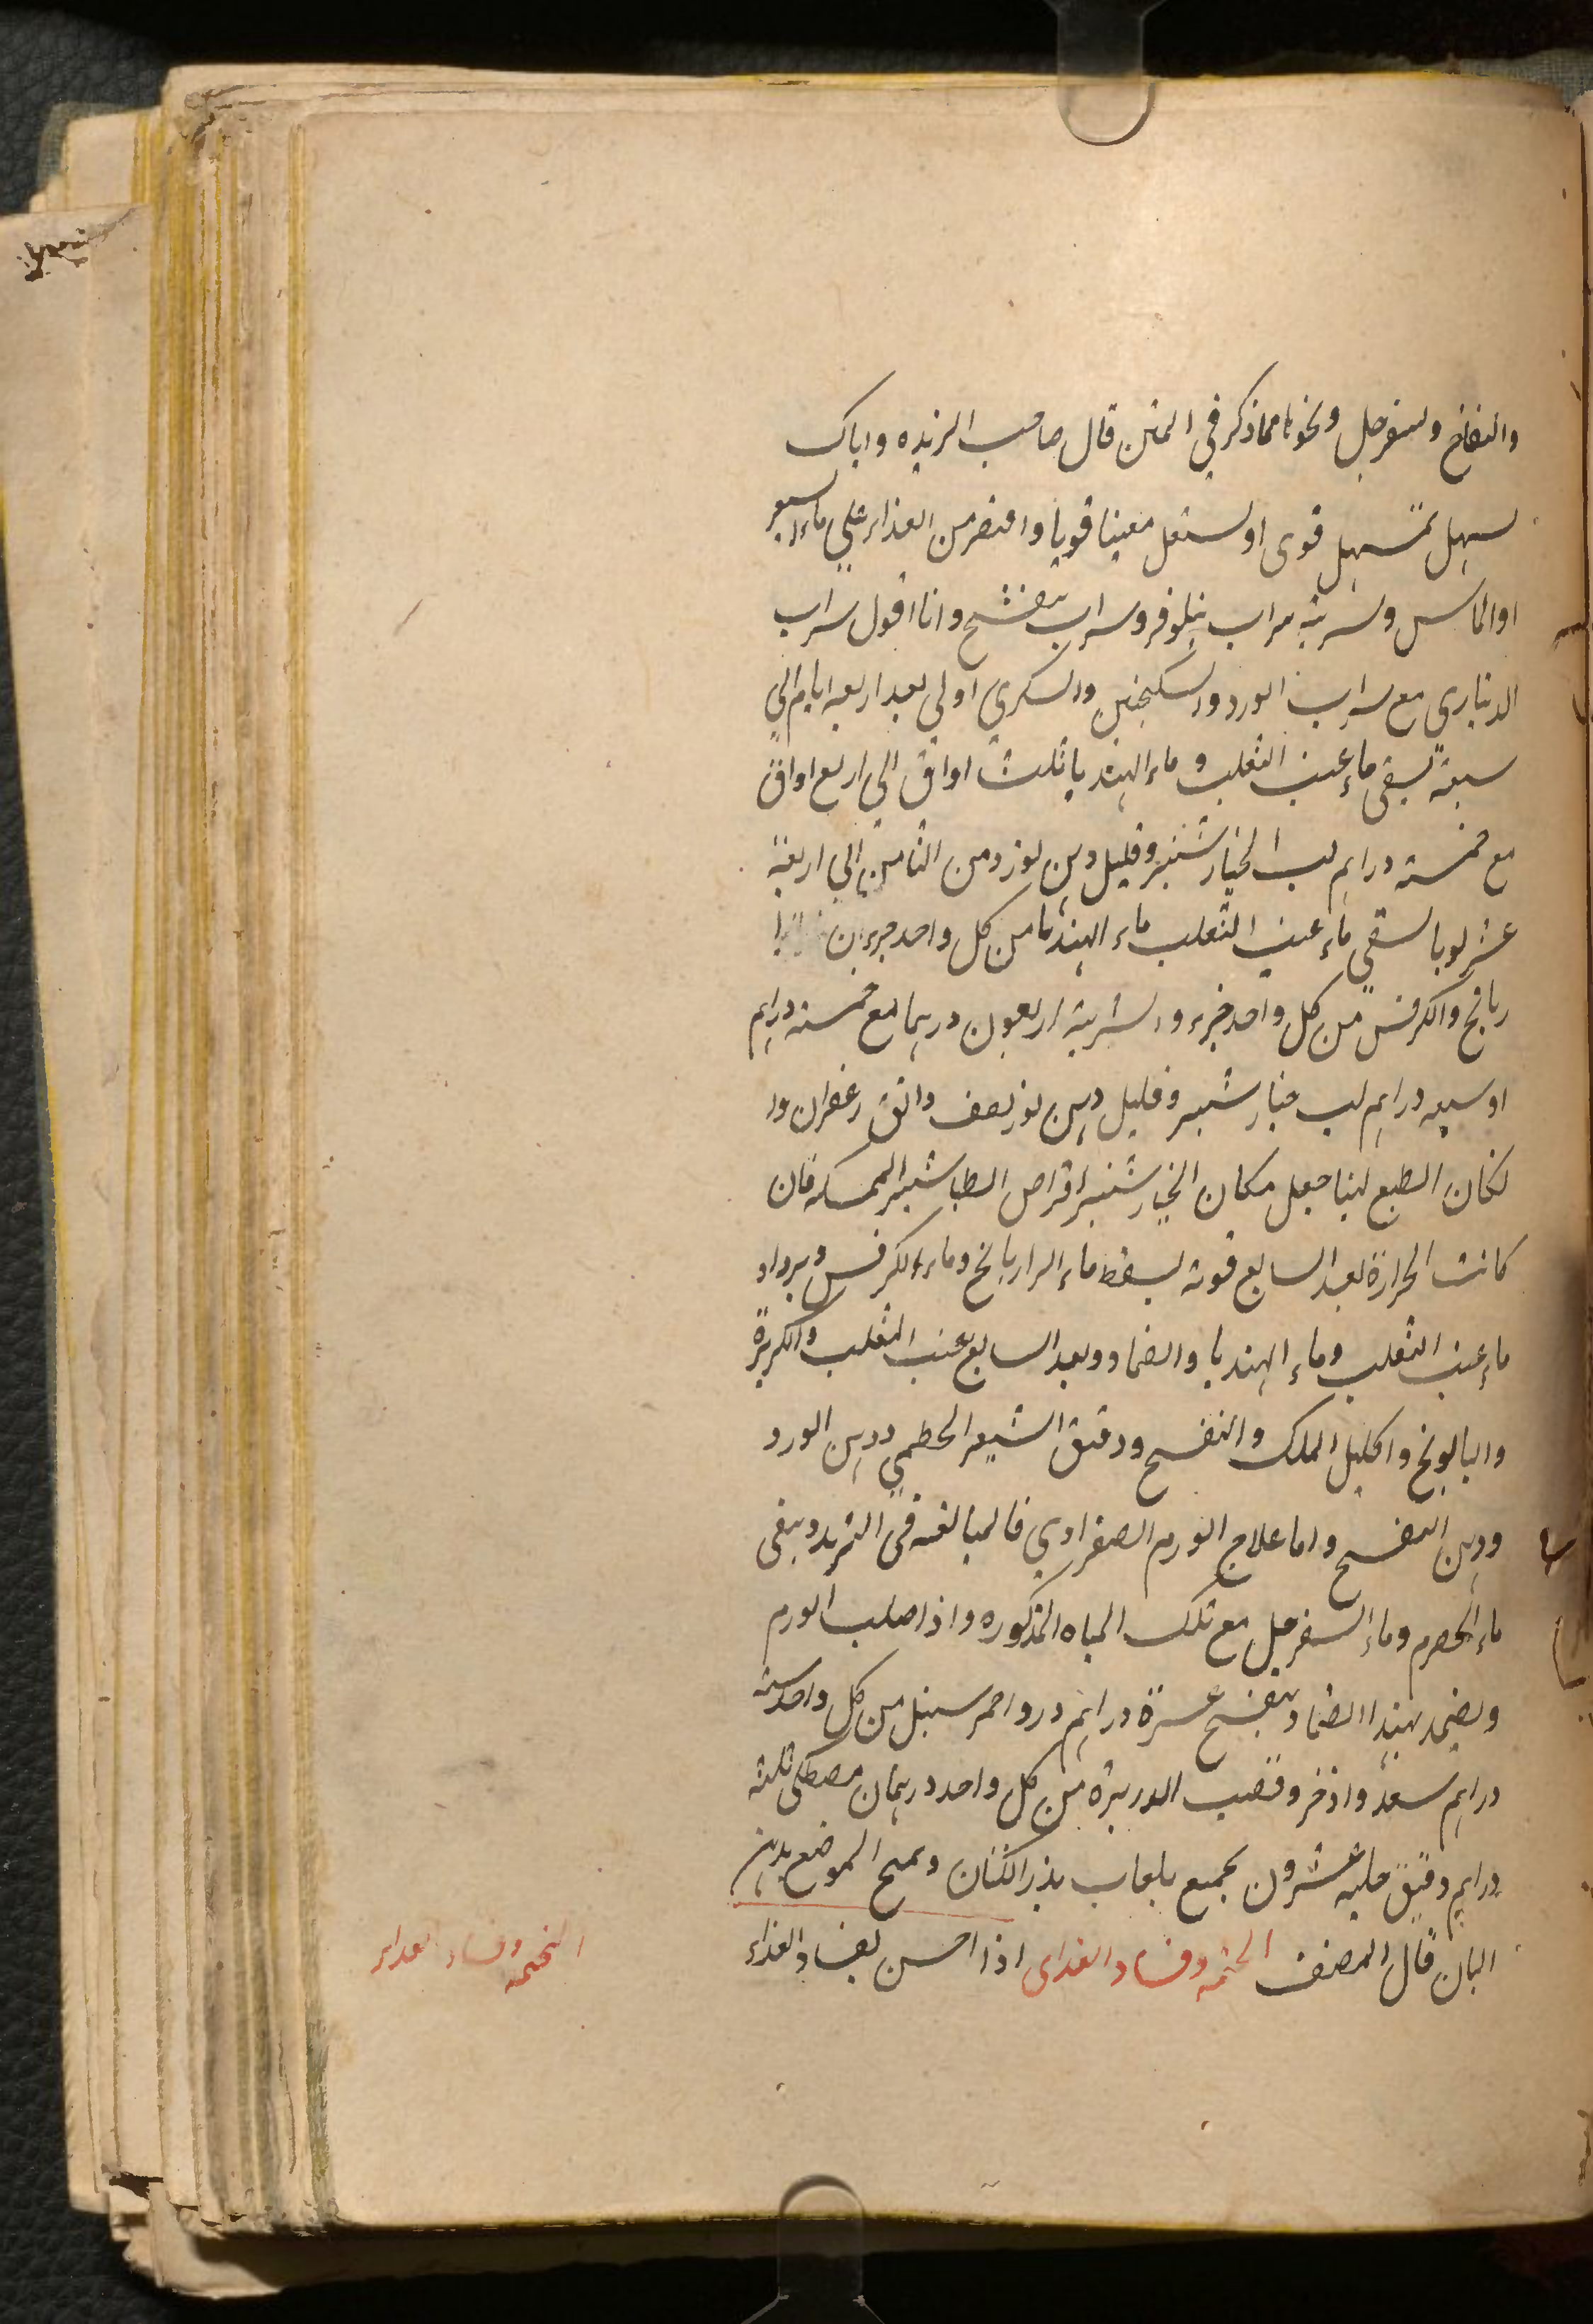 والتفاح والسفرجل ونحوها مما ذكر في المتن قال صاحب الزبده واياك
تسهل بمسهل قوى او تستعمل مقييا قويا واقتصر من الغذاء على ماء الشعير
او الماس وشربته شراب نيلوفر وشراب بنفسج وانا اقول شراب
الديناري مع شراب الورد والسكنجبين والسكري اولى بعد اربعه ايام الى
سبعة يسقى ماء عنب الثعلب و ماء الهندبا ثلث اواق الى اربع اواق
مع خمسة دراهم لب الخيار شنبر وقليل دهن لوز ومن الثامن الى اربعة
عشر يوما يسقى ماء عنب الثعلب ماء الهندبا من كل واحد جزءان
ريانج والكرفس من كل واحد جزء والشربة اربعون درهما مع خمسة دراهم
او سبعه دراهم لب خيار شنبر وقليل دهن لوز نصف دانق زعفران وا
لكان الطبع لينا جعل مكان الخيار شنبر اقراص الطباشير الممسكه فان
كانت الحرارة بعد السابع قوية يسقط ماء الرازيانج وماء الكرفس ويزداد
ماء عنب الثعلب وماء الهندبا والضماد وبعد السابع عنب الثعلب والكزبرة
والبابونج واكليل الملك والبنفسج ودقيق الشعير الخطمي ودهن الورد
ودهن البنفسج واما علاج الورم الصفراوي فالمبالغه في التبريد ويسقى
ماء الحصرم وماء السفرجل مع تلك المياه المذكوره واذا صلب الورم
ويضمد بهذا الضماد بنفسج عشرة دراهم ورد احمر سنبل من كل واحد ستة
دراهم سعد واذخر وقصب الذريرة من كل واحد درهمان مصطكى ثلثة
دراهم دقيق حلبه عشرون يجمع بلعاب بذر الكتان ويمسح الموضع بدهن
البان قال المصنف التخمه وفساد الغذاى اذا احسن بفساد الغذاء
التخمه وفساد الغذاء